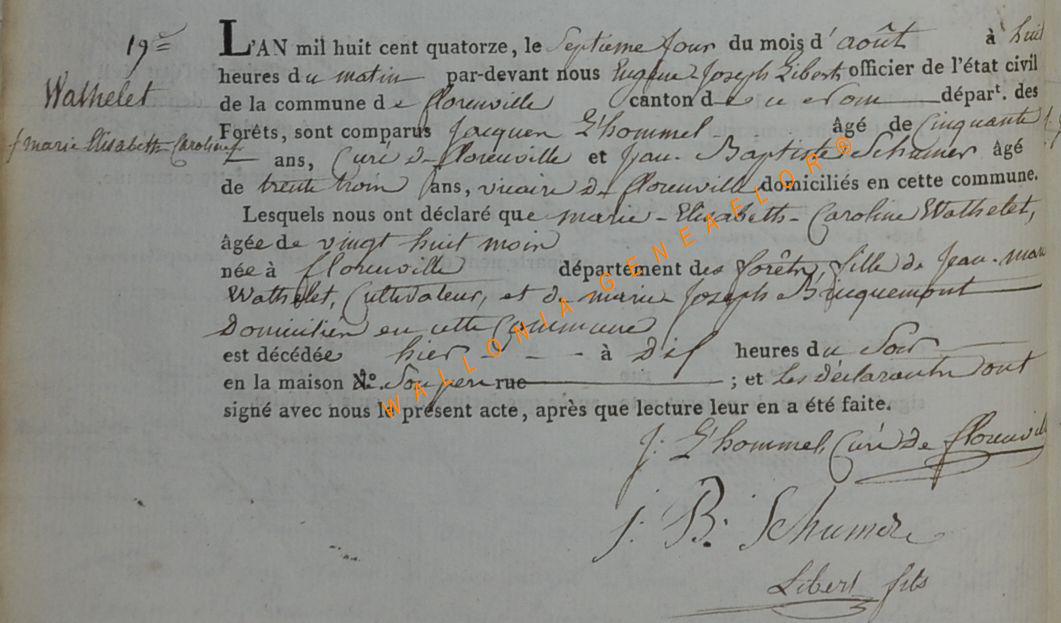 19e
Wathelet
marie Elisabeth Caroline
L'AN mil huit cent quatorze, le Septieme Jour du mois d'août à huit
heures du matin par-devant nous Eugene Joseph Libert officier de l'état civil
de la commune de florenville canton de départt. des
Forêts, sont comparus Jacques L'hommel âgé de Cinquante
ans, Curé de florenville et Jean-Baptiste Schumer âgé
de trente trois ans, vicaire de florenville domiciliés en cette commune.
Lesquels nous ont déclaré que marie-Elisabeth-Caroline Wathelet,
âgée de vingt huit mois
née à florenville département des forêts, fille de Jean-
Wathelet, Cultivateur, et de marie Joseph Bricquemont
Domiciliés en cette Commune
est décédée hier à Dix heures du Soir
en la maison No. rue ; et Les déclarants ont
signé avec nous le présent acte, après que lecture leur en a été faite.
J: L'hommel, Curé de florenville
J: B: Schumer
Libert fils
WALLONIA-GENEAFLOR®